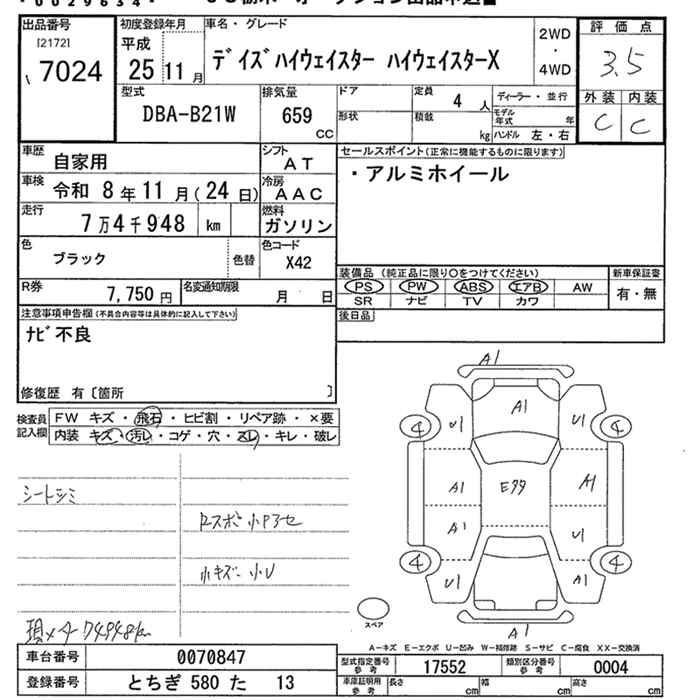 出品番号
[2172]
7024
初度登録年月
平成
25 11 月
車名・グレード
ﾃﾞｲｽﾞハイウェイスター ハイウェイスターX
2WD
・
4WD
評価点
3.5
外装 内装
C C
型式
DBA-B21W
排気量
659
cc
ドア
形状
定員
4 人
積載
kg
ディーラー・並行
モデル年式 年
ハンドル 左・右
車歴
自家用
シフト
AT
車検
令和 8年11月(24日)
冷房
AAC
走行
7万4千948 km
燃料
ガソリン
色
ブラック
色替
色コード
X42
R券
7,750 円
名変通知期限
月 日
セールスポイント(正常に機能するものに限ります)
・アルミホイール
装備品 (純正品に限り○をつけてください)
PS PW ABS エアB AW
SR ナビ TV カワ
新車保証書
有・無
後日品
注意事項申告欄(不具合内容等は具体的に記入して下さい)
ﾅﾋﾞ不良
修復歴 有〔箇所 〕
検査員記入欄
FW キズ・飛石・ヒビ割・リペア跡・×要
内装 キズ・汚レ・コゲ・穴・スレ・キレ・破レ
シートシミ
ロスポ小Pアセ
小キズ 小U
現メーター74948km
A1
A1
U1 U1
4 4
A1 E99 A1
A1 U1
4 4
U1 A1
A1
スペア
A-キズ E-エクボ U-凹み W-補修跡 S-サビ C-腐食 XX-交換済
車台番号 0070847
登録番号 とちぎ 580 た 13
型式指定番号 参考 17552
類別区分番号 参考 0004
車庫証明用 参考
長さ cm 幅 cm 高さ cm